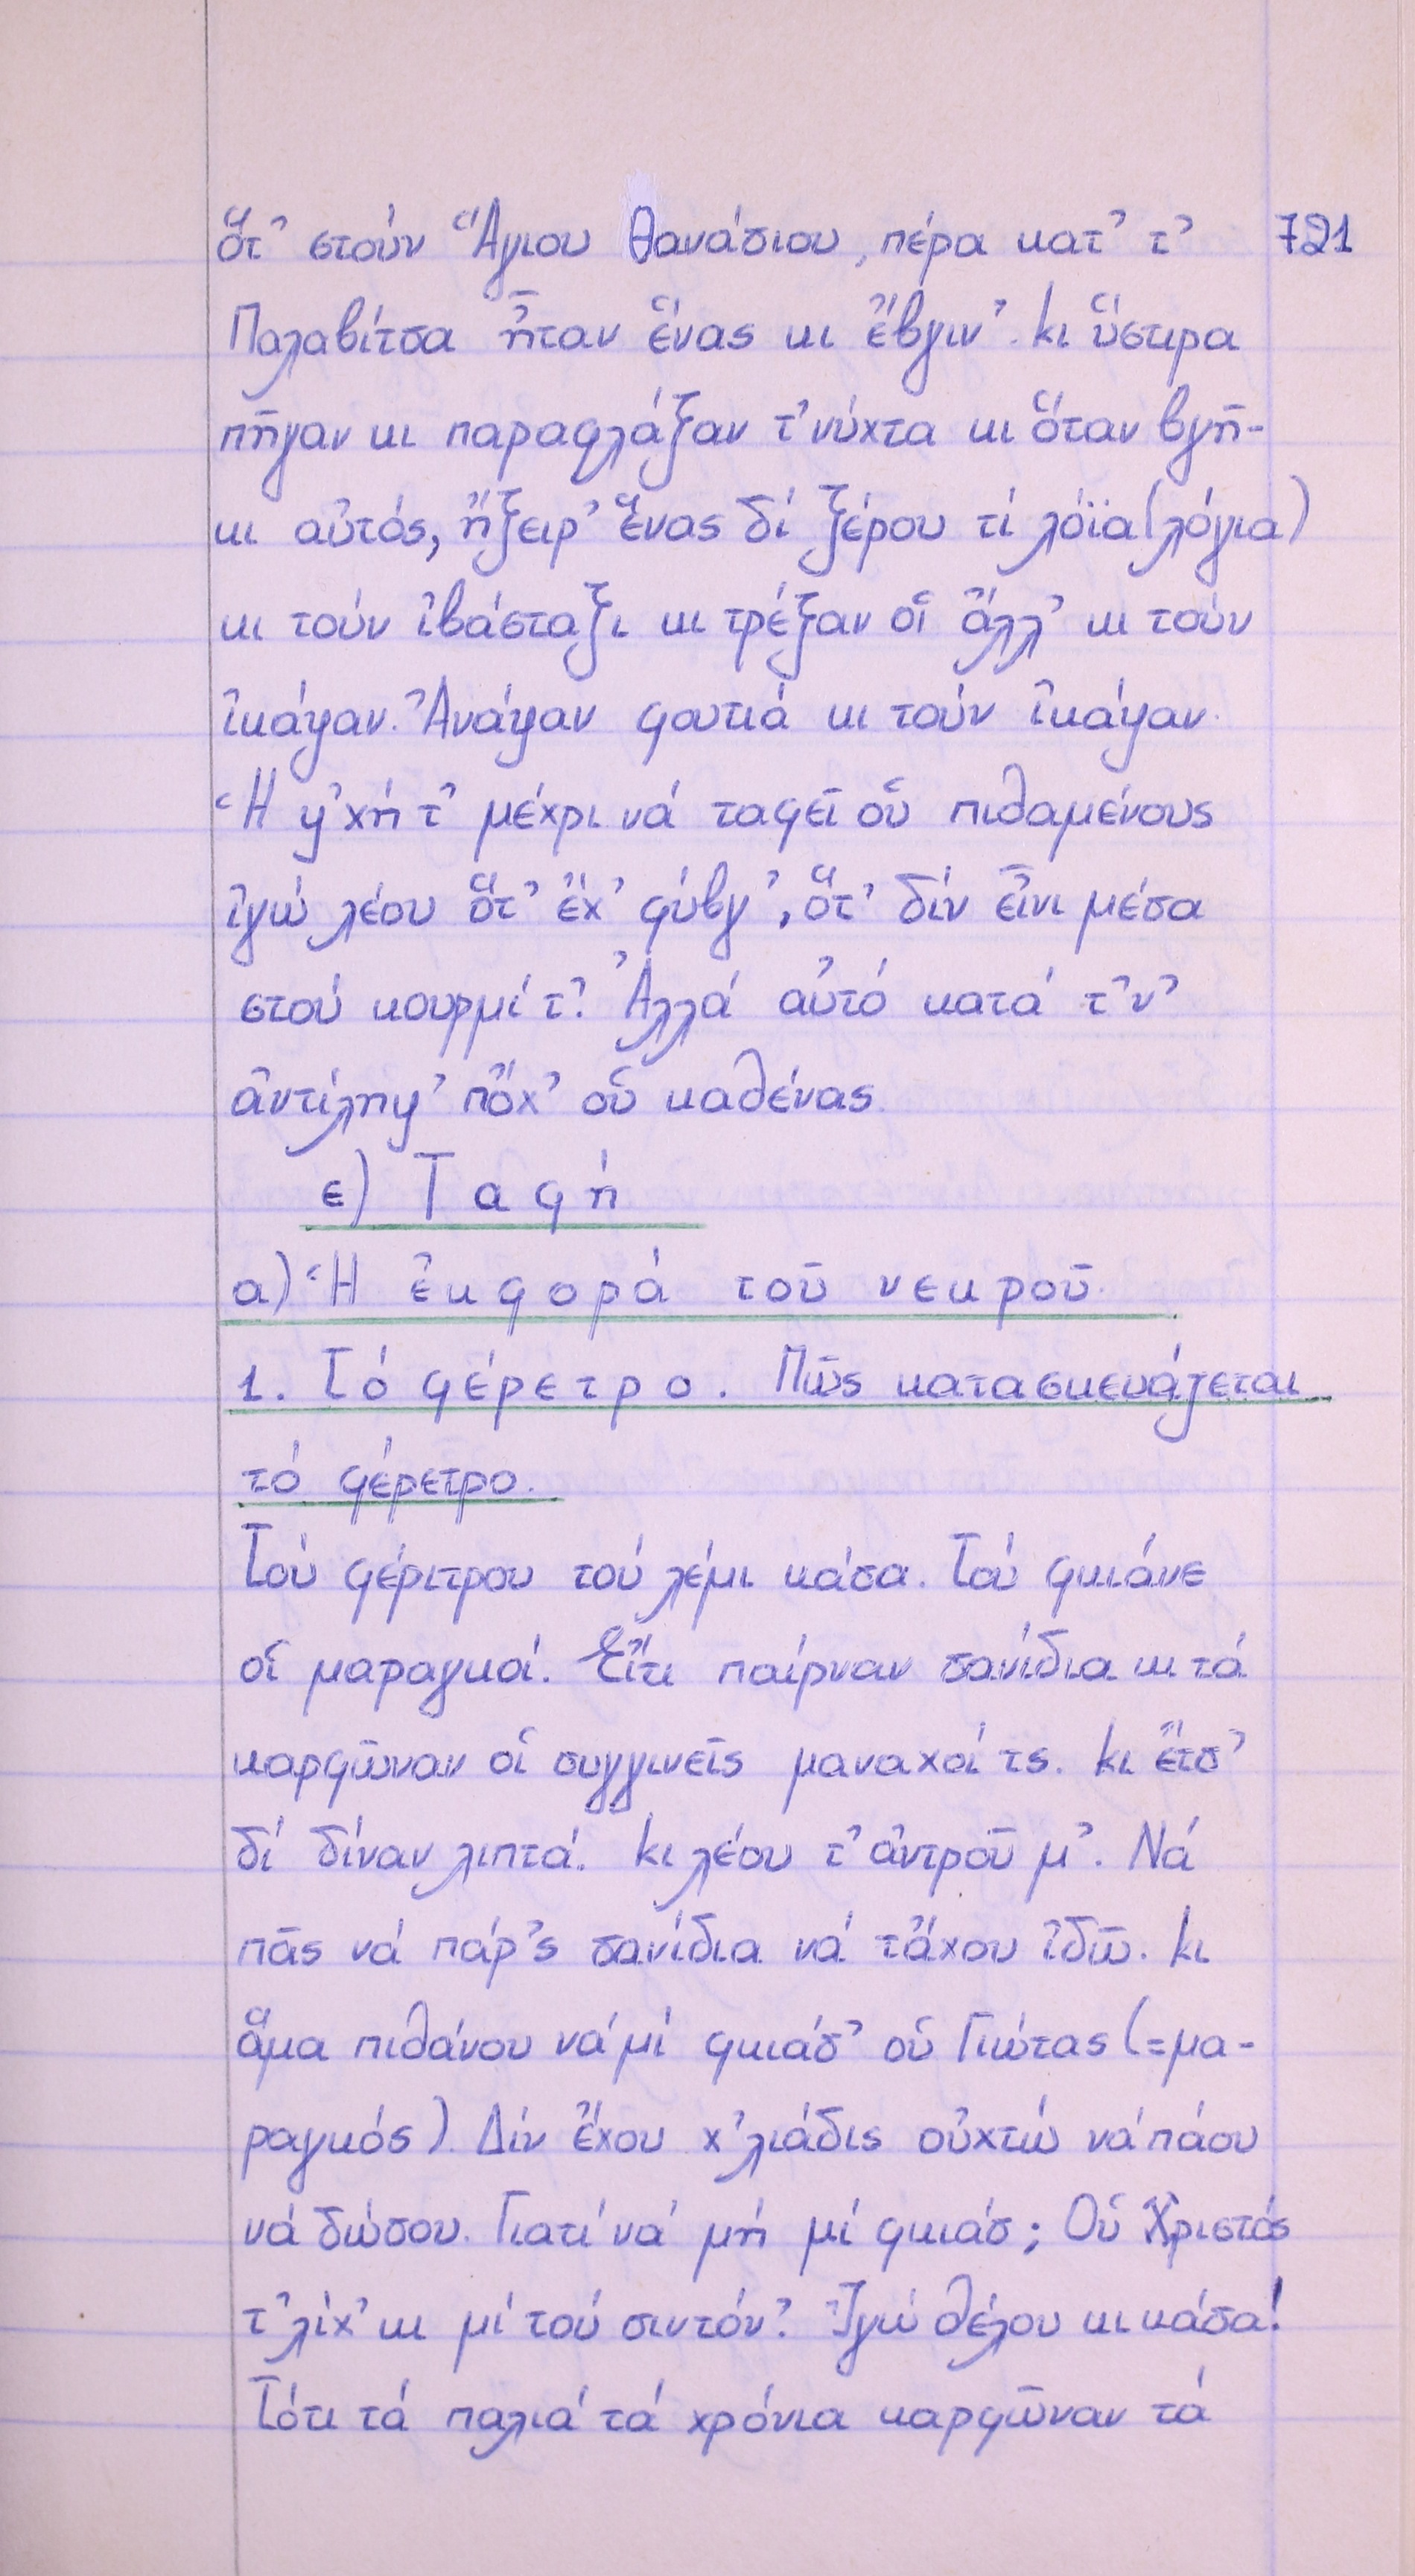 ὅτ᾿ στούν Ἅγιου Θανάσιου, πέρα κατ᾿ τ᾿ 721
Παλαβίτσα ἦταν ἕνας κι ἔβγιν᾿. κι ὕστιρα
πῆγαν κι παραφλάξαν τ᾿ νύχτα κι ὅταν βγῆ-
κι αὐτός, ἤξειρ᾿ ἕνας δί ξέρου τί λόϊα (λόγια)
κι τούν ἰβάσταξι κι τρέξαν οἱ ἄλλ᾿ κι τούν
ἰκάψαν. Ἀνάψαν φουτιά κι τούν ἰκάψαν.
Ἡ ψ᾿χή τ᾿ μέχρι νά ταφεῖ οὑ πιθαμένους
ἰγώ λέου ὅτ᾿ ἔχ᾿ φύβγ᾿, ὅτ᾿ δίν εἶνι μέσα
στού κουρμί τ᾿. Ἀλλά αὐτό κατά τ᾿ν᾿
ἀντίληψ᾿ πὄχ᾿ οὑ καθένας.
ε) Ταφή
α) Ἡ ἐκφορά τοῦ νεκροῦ.
1. Τό φέρετρο. Πῶς κατασκευάζεται
τό φέρετρο.
Τού φέριτρου τού λέμι κάσα. Τού φκιάνε
οἱ μαραγκοί. Εἴτι παίρναν σανίδια κι τά
καρφῶναν οἱ συγγινεῖς μαναχοί τς. κι ἔτσ᾿
δί δίναν λιπτά. κι λέου τ᾿ ἀντροῦ μ᾿. Νά
πᾶς νά πάρ᾿ς σανίδια νά τἄχου ἰδῶ. κι
ἅμα πιθάνου νά μί φκιάσ᾿ οὑ Γιώτας (=μα-
ραγκός). Δίν ἔχου χ᾿λιάδις οὐχτώ νά πάου
νά δώσου. Γιατί νά μή μί φκιάσ; Οὑ Χριστός
τ᾿λίχ᾿κι μί τού σιντόν᾿. Ἰγώ θέλου κι κάσα!
Τότι τά παλιά τά χρόνια καρφῶναν τά